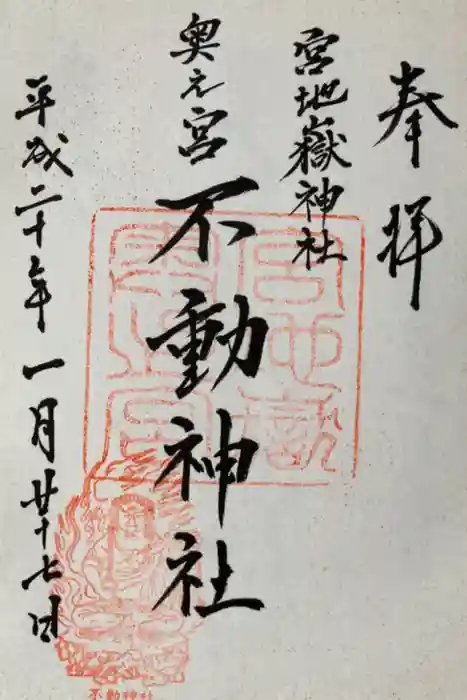 奉拝
宮地嶽神社
奥之宮
不動神社
平成二十七年一月廿七日
不動神社